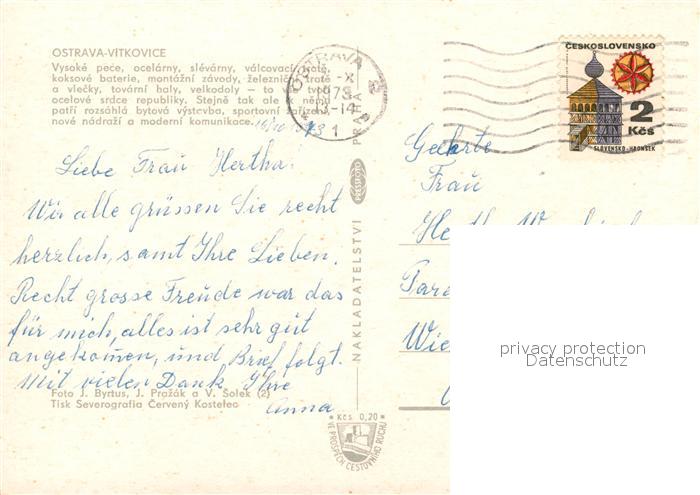 OSTRAVA-VÍTKOVICE
Vysoké pece, ocelárny, slévárny, válcovací tratě,
koksové baterie, montážní závody, železniční tratě
a vlečky, tovární haly, velkodoly — to vše tvoří
ocelové srdce republiky. Stejně tak ale k němu
patří rozsáhlá bytová výstavba, sportovní zařízení,
nové nádraží a moderní komunikace.
Liebe Frau Hertha.
Wir alle grüssen Sie recht
herzlich, samt Ihre Lieben.
Recht grosse Freude war das
für mich, alles ist sehr gut
angekom̅en, und Brief folgt.
Mit vielen Dank Ihre
Anna
Foto J. Byrtus, J. Pražák a V. Šolek (2)
Tisk Severografia Červený Kostelec
NAKLADATELSTVÍ
PRESSFOTO
PRAHA
Kčs 0,20
VE PROSPĚCH CESTOVNÍHO RUCHU
OSTRAVA
1
ČESKOSLOVENSKO
2
Kčs
SLOVENSKO-HRONSEK
Geehrte
Frau
privacy protection
Datenschutz